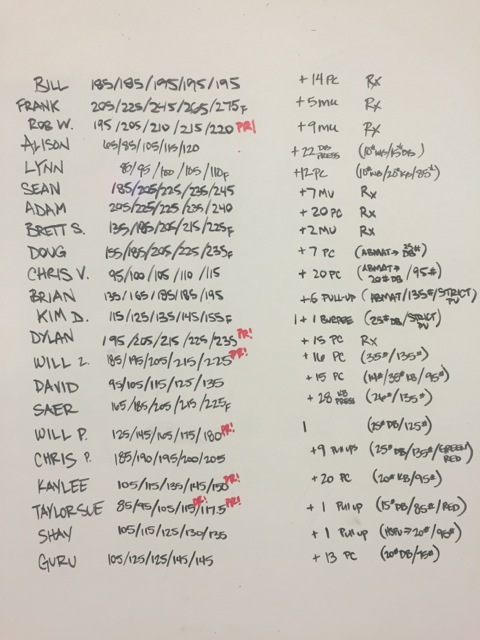 BILL 185/185/195/195/195 +14 PC Rx
FRANK 205/225/245/265/275F +5 MU Rx
ROB W. 195/205/210/215/220 PR! +9 MU Rx
ALISON 65/85/105/115/120 +22 DB PRESS (10# KB/15# DB)
LYNN 85/95/100/105/110F +12 PC (10# KB/20# KB/85#)
SEAN 185/205/225/235/245 +7 MU Rx
ADAM 205/225/225/235/240 +20 PC Rx
BRETT S. 135/185/205/215/225F +2 MU Rx
DOUG 155/185/205/225/235F +7 PC (ABMAT→ 25# DB)
CHRIS V. 95/100/105/110/115 +20 PC (ABMAT→ 20# DB/95#)
BRIAN 135/165/185/185/195 +6 PULL-UP (ABMAT/135#/STRICT PU)
KIM D. 115/125/135/145/155F 1+1 BURPEE (25# DB/STRICT PU)
DYLAN 195/205/215/225/235 PR! +15 PC Rx
WILL Z. 185/195/205/215/225 PR! +16 PC (35#/135#)
DAVID 95/105/115/125/135 +15 PC (/35# KB/95#)
SAER 165/185/205/215/225F +28 KB PRESS (26#/135#)
WILL P. 125/145/165/175/180 PR! 1 (25# DB/125#)
CHRIS P. 185/190/195/200/205 +9 PULLUPS (25# DB/135#/GREEN/RED)
KAYLEE 105/115/135/145/150 PR! +20 PC (20# KB/95#)
TAYLORSUE 85/95/105/115 PR!/117.5 PR! +1 PULLUP (15# DB/85#/RED)
SHAY 105/115/125/130/135 +1 PULLUP (HSPU→20#/95#)
GURU 105/125/125/145/145 +13 PC (20# DB/95#)